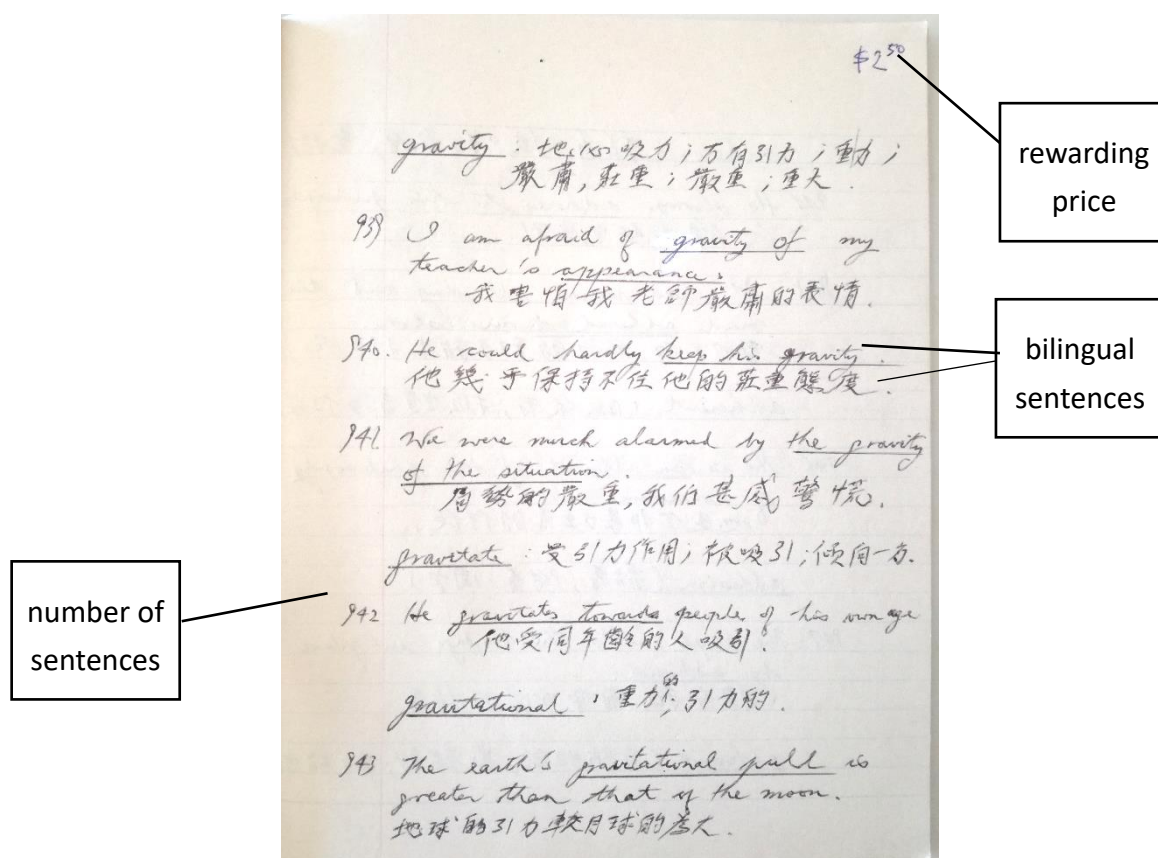 $2.50
rewarding
price
gravity : 地心吸力；万有引力；重力；
嚴肅，莊重；嚴重；重大.
939 I am afraid of gravity of my
teacher's appearance.
我害怕我老師嚴肅的表情.
bilingual
sentences
940. He could hardly keep his gravity.
他幾乎保持不住他的莊重態度.
941. We were much alarmed by the gravity
of the situation.
局勢的嚴重，我们甚感驚慌.
gravitate : 受引力作用；被吸引；倾向一方.
number of
sentences
942 He gravitates towards people of his own age
他受同年齡的人吸引.
gravitational : 重力的；引力的.
943 The earth's gravitational pull is
greater than that of the moon.
地球的引力較月球的為大.